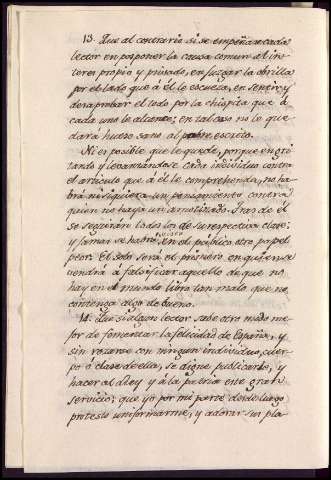 13. Que al contrario si se empeñase cada
lector en posponer la causa comun al in
teres propio y privado, en juzgar la obrilla
por el lado que á él le escuece, en sentir y
desaprobar el todo por la chispita que á
cada uno le alcance; en tal caso no le que
dará hueso sano al pobre escrito.
Ni es posible que le quede, porque en gri
tando y levantandose cada individuo contra
el articulo que á él le comprehenda, no ha
brá ni siquiera un pensamiento contra
quien no haya un amotinado. Tras de él
se seguirán todos los de su respectiva clase;
y jamas se habrá visto en el público otro papel
peor. El solo será el primero en quien se
vendrá á falsificar aquello de que no
hay en el mundo libro tan malo que no
contenga algo de bueno.
14. Que si algun lector sabe otro modo me
jor de fomentar la felicidad de España, y
sin rozarse con ningun individuo, cuer
po ó clase de ella, se digne publicarlo, y
hacer al Rey y á la patria este gran
servicio; que yo por mi parte desde luego
protesto uniformarme, y adorar su pla